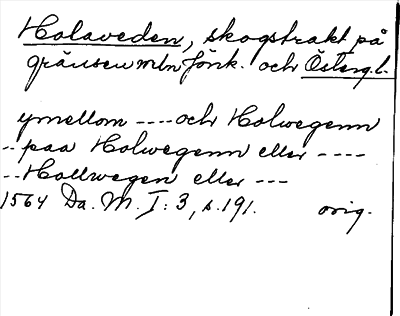 Holaveden, skogstrakt på
gränsen mln Jönk. och Österg.l.
ymellom ---- och Holwegenn
-- paa Holwegenn eller ----
-- Hollwegen eller ---
1564 Da. M. I: 3, s. 191. orig.